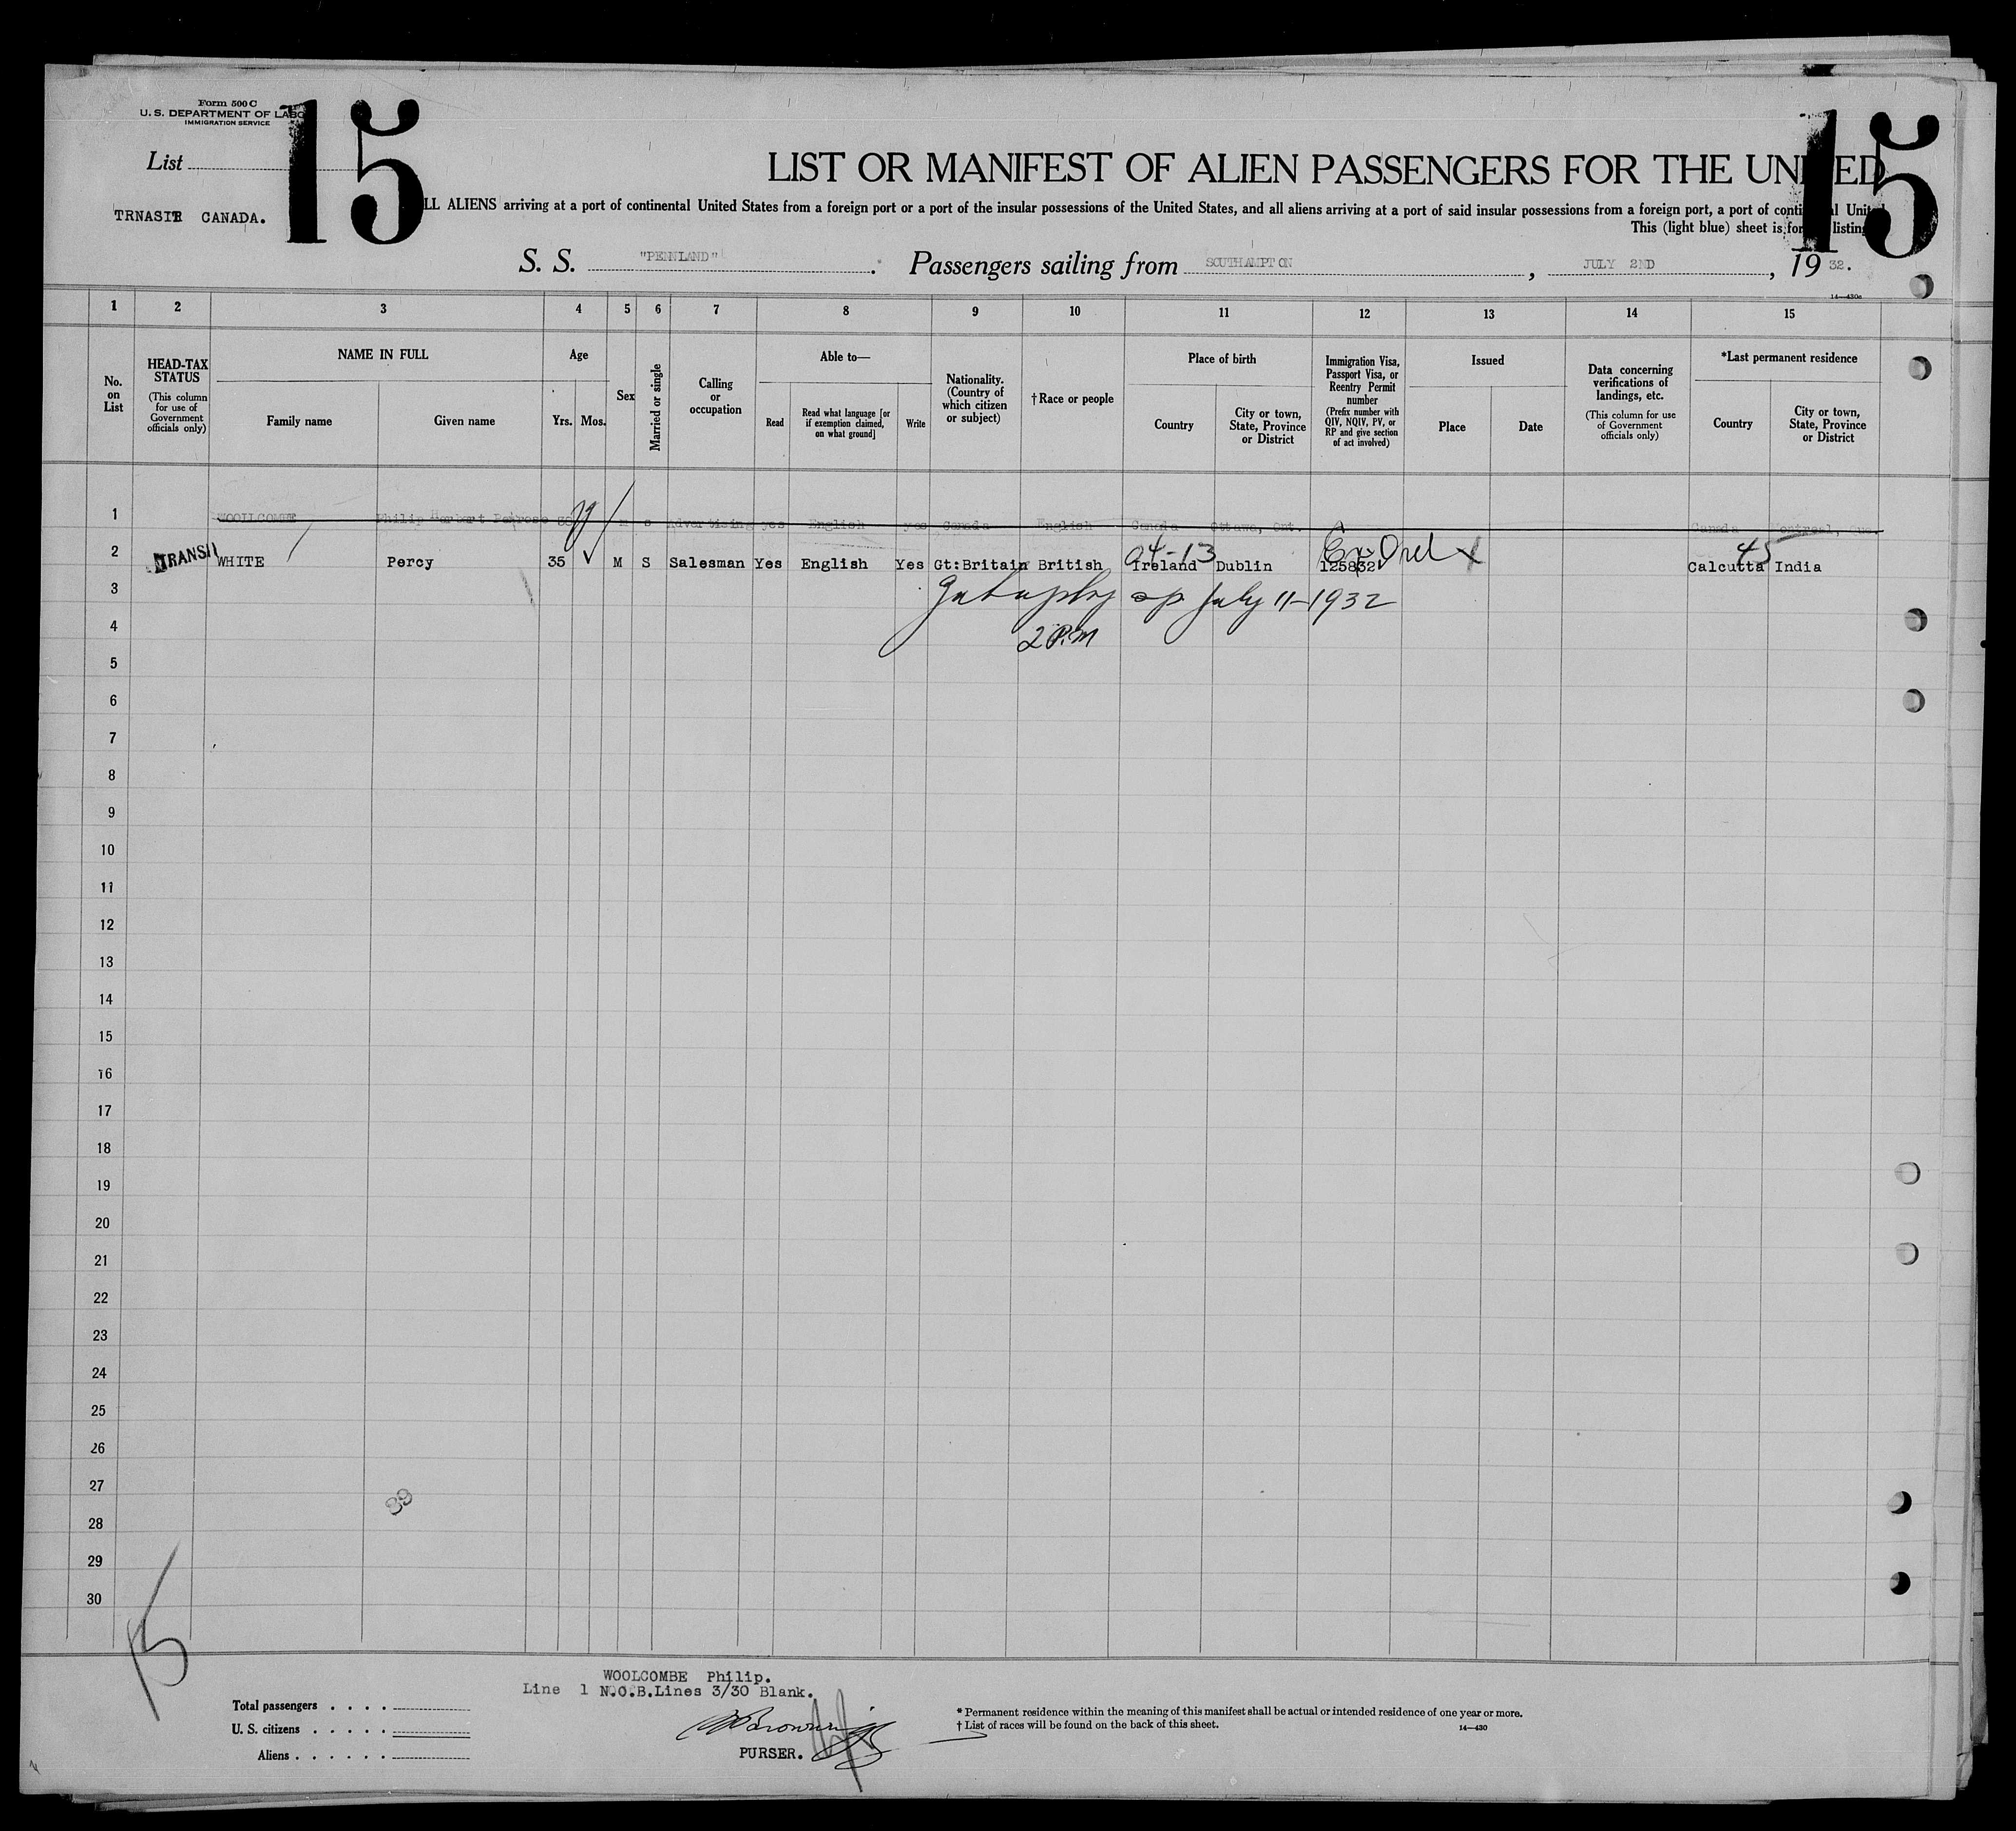 Form 500 C
U. S. DEPARTMENT OF LABO
IMMIGRATION SERVICE
15
15
List
LIST OR MANIFEST OF ALIEN PASSENGERS FOR THE UNITED
TRNASIT CANADA.
LL ALIENS arriving at a port of continental United States from a foreign port or a port of the insular possessions of the United States, and all aliens arriving at a port of said insular possessions from a foreign port, a port of continental United
This (light blue) sheet is for listing
S. S. "PENNLAND" . Passengers sailing from SOUTHAMPTON , JULY 2ND , 19 32.
14—430c
1 2 3 4 5 6 7 8 9 10 11 12 13 14 15
No. on List
HEAD-TAX STATUS
(This column for use of Government officials only)
NAME IN FULL
Family name
Given name
Age
Yrs.
Mos.
Sex
Married or single
Calling or occupation
Able to—
Read
Read what language [or if exemption claimed, on what ground]
Write
Nationality. (Country of which citizen or subject)
† Race or people
Place of birth
Country
City or town, State, Province or District
Immigration Visa, Passport Visa, or Reentry Permit number
(Prefix number with QIV, NQIV, PV, or RP and give section of act involved)
Issued
Place
Date
Data concerning verifications of landings, etc.
(This column for use of Government officials only)
*Last permanent residence
Country
City or town, State, Province or District
1 WOOLLCOMBE Philip Herbert M S Advertising yes English yes Canada English Canada Ottawa, Ont. Canada Montreal, Que.
04-13 45
2 TRANSIT WHITE Percy 35 M S Salesman Yes English Yes Gt:Britain British Ireland Dublin 125832 Calcutta India
3 July 11-1932
4 2 P.M
5
6
7
8
9
10
11
12
13
14
15
16
17
18
19
20
21
22
23
24
25
26
27
89
28
29
30
15
WOOLCOMBE Philip.
Line 1 N.O.B. Lines 3/30 Blank.
Total passengers . . . .
U. S. citizens . . . . .
Aliens . . . . . .
PURSER.
* Permanent residence within the meaning of this manifest shall be actual or intended residence of one year or more.
† List of races will be found on the back of this sheet.
14—430